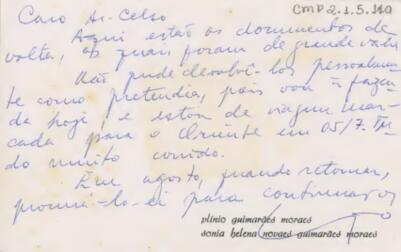 CMP 2.1.5.110
Caro Dr. Celso
Aqui estão os documentos de
volta, os quais foram de grande valia
Não pude devolvê-los pessoalmen-
te como pretendia, pois vou à fazen-
da hoje e estou de viagem mar-
cada para o Oriente em 05/7. Tu-
do muito corrido.
Em agosto, quando retornar,
procurá-lo-ei para continuarmos
plinio guimarães moraes
sonia helena novaes guimarães moraes